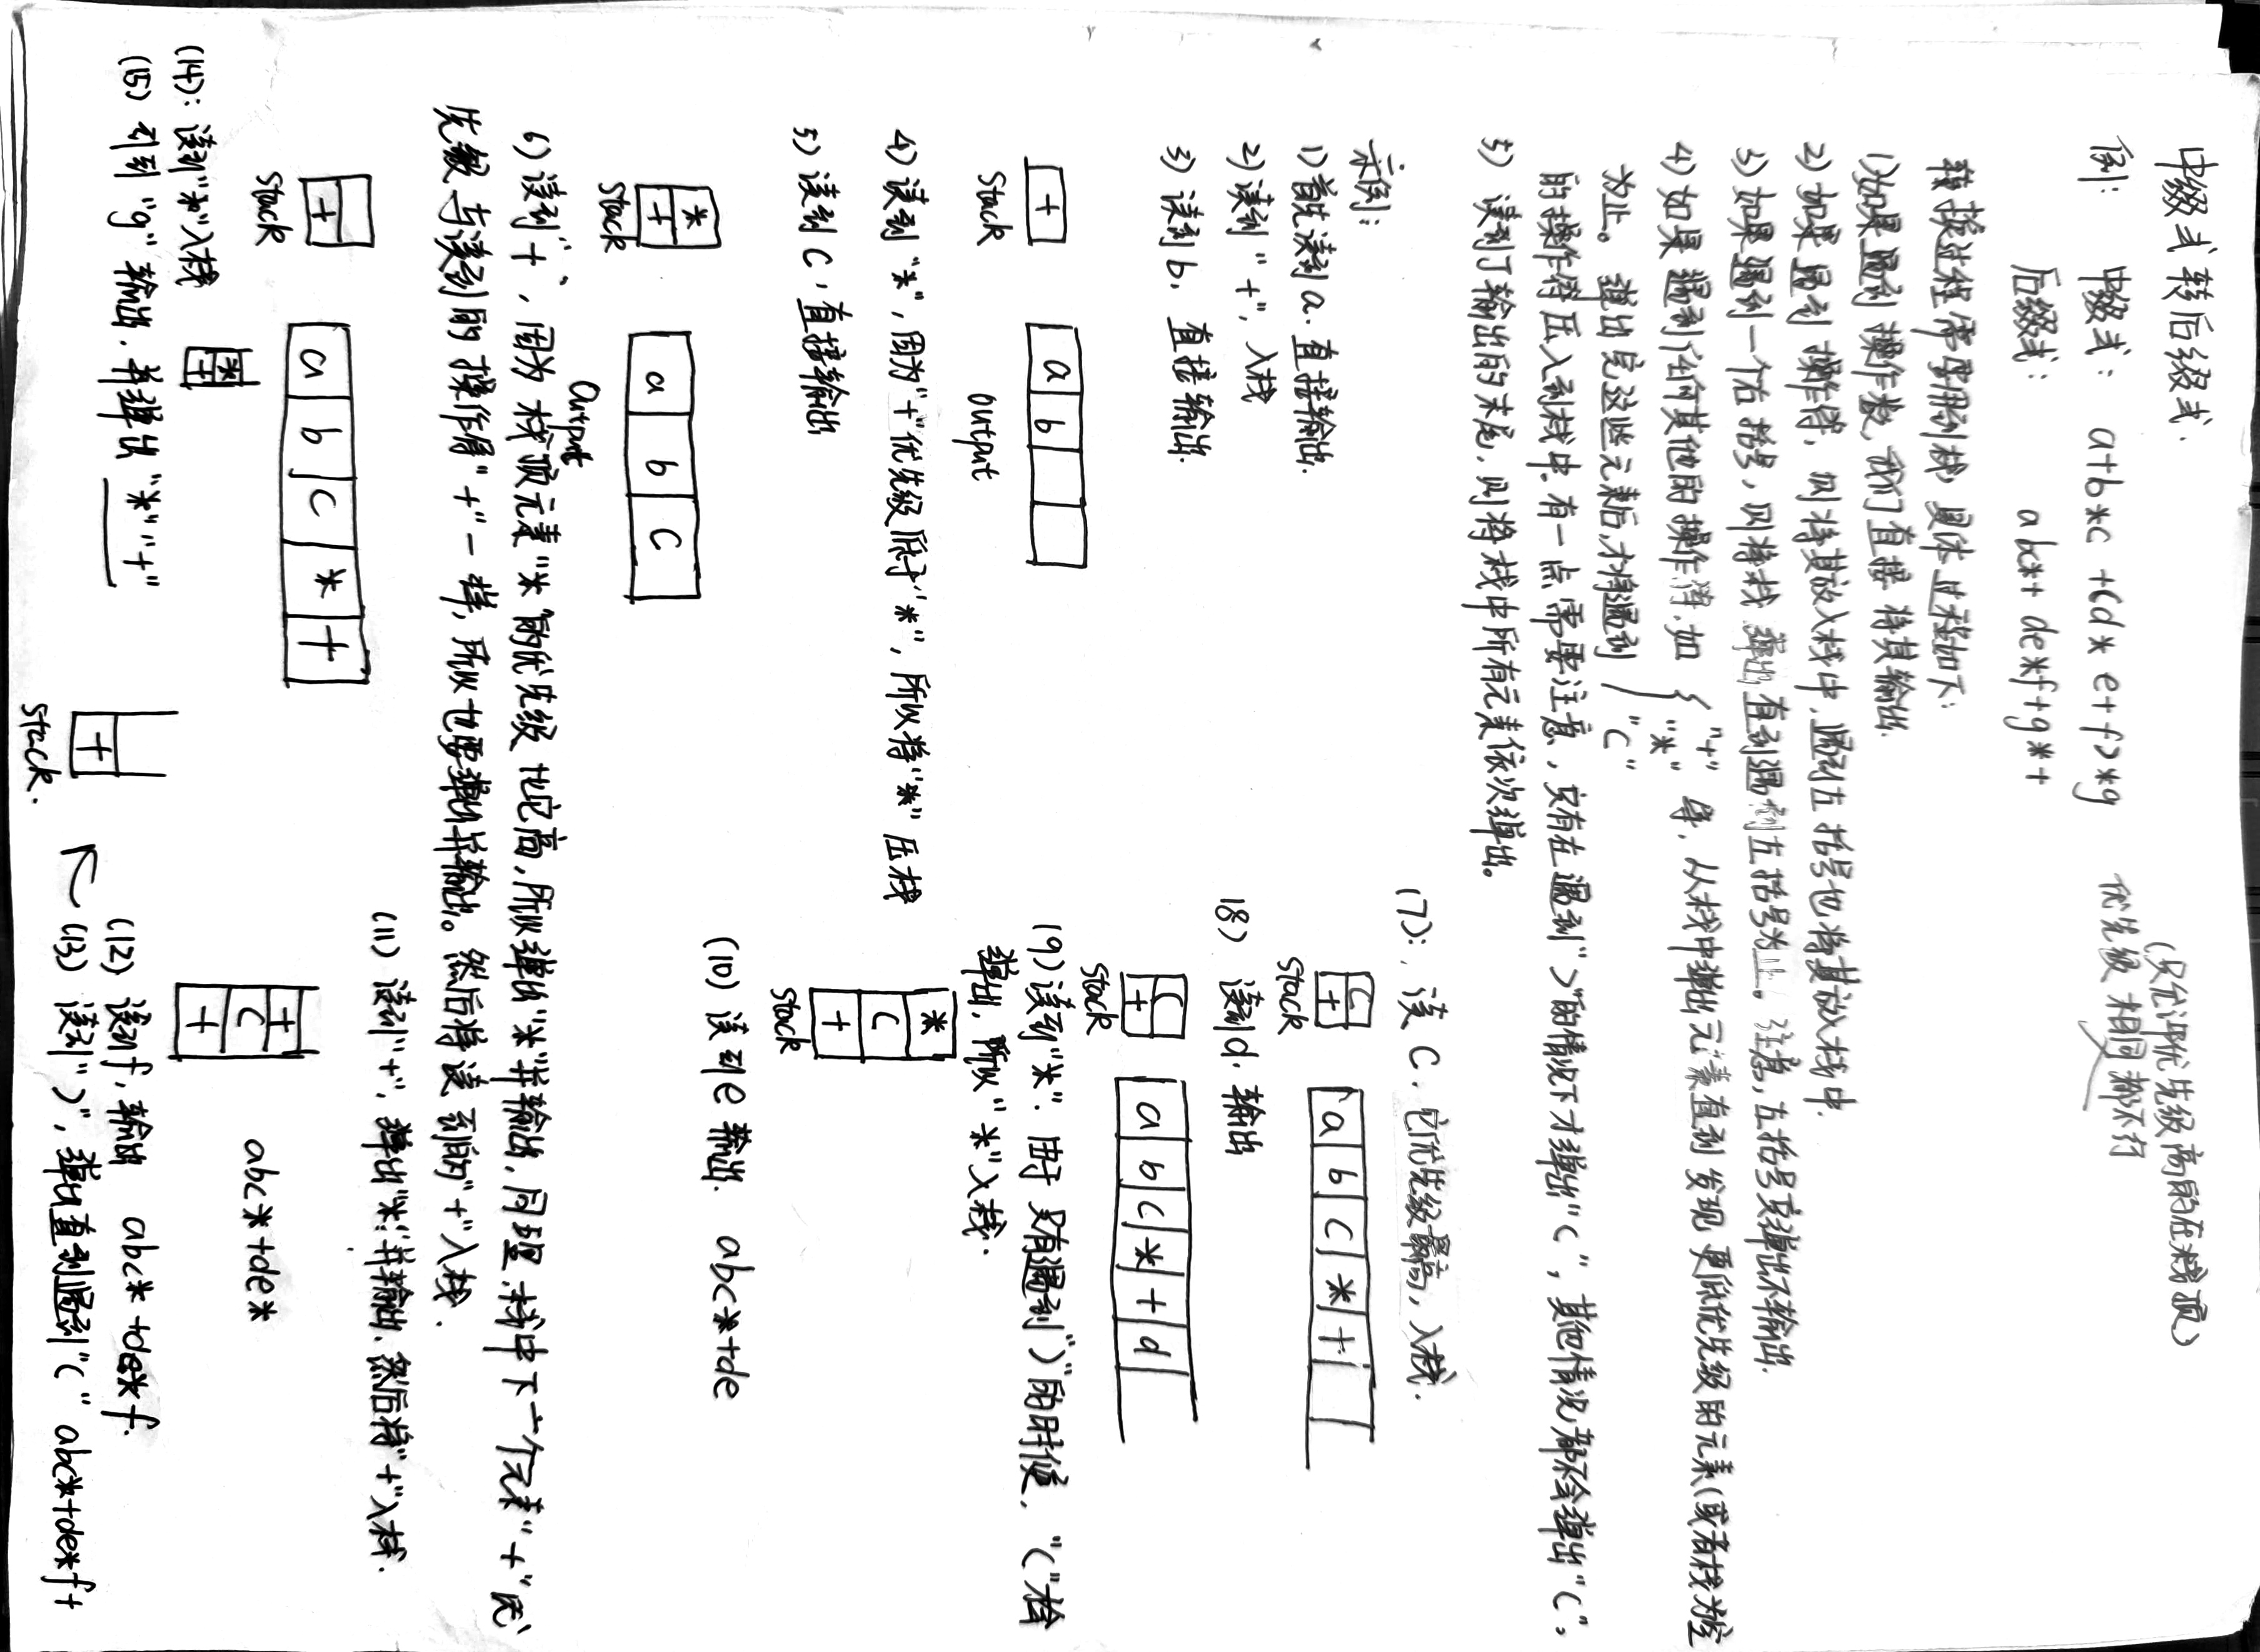 中缀式转后缀式.
(只允许优先级高的在栈顶)
优先级相同都不行
例: 中缀式: a+b*c +(d* e+f)*g
后缀式: abc*+ de*f+g*+
转换过程需要用到栈, 具体过程如下:
1)如果遇到操作数, 我们直接将其输出.
2) 如果遇到操作符, 则将其放入栈中, 遇到左括号也将其放入栈中.
3) 如果遇到一个右括号, 则将栈弹出直到遇到左括号为止。注意, 左括号只弹出不输出.
4) 如果遇到任何其他的操作符, 如 "+" "*" "(" 等, 从栈中弹出元素直到发现更低优先级的元素(或者栈为空
为止。弹出完这些元素后, 才将遇到
的操作符压入到栈中. 有一点需要注意, 只有在遇到")"的情况下才弹出"(", 其他情况都不会弹出"("。
5) 读到了输出的末尾, 则将栈中所有元素依次弹出。
示例:
1)首先读到a. 直接输出.
2)读到"+", 入栈
3) 读到b, 直接输出.
+
a b
stack
output
4) 读到"*", 因为"+"优先级低于"*", 所以将"*"压栈
5) 读到C, 直接输出
*
+
a b C
stack
Output
6) 读到"+", 因为栈顶元素"*"的优先级比它高, 所以弹出"*"并输出, 同理, 栈中下一个元素"+"优
先级与读到的操作符"+"一样, 所以也要弹出并输出。然后将读到的"+"入栈.
+
a b c * +
stack
(7): 读 (. 它优先级最高, 入栈.
(
+
a b c * +
stack
(8) 读到d. 输出
(
+
a b c * + d
stack
(9) 读到"*". 由于只有遇到")"的时候, "("才会
弹出, 所以"*"入栈.
*
(
+
stack
(10) 读到e 输出. abc*+de
(11) 读到"+", 弹出"*"并输出, 然后将"+"入栈.
+
(
+
abc*+de*
(12) 读到f, 输出 abc*+de*f.
(13) 读到")", 弹出直到遇到"(" abc*+de*f+
+
stack.
(14): 读到"*"入栈
*
+
(15) 到"g"输出, 并弹出"*""+"